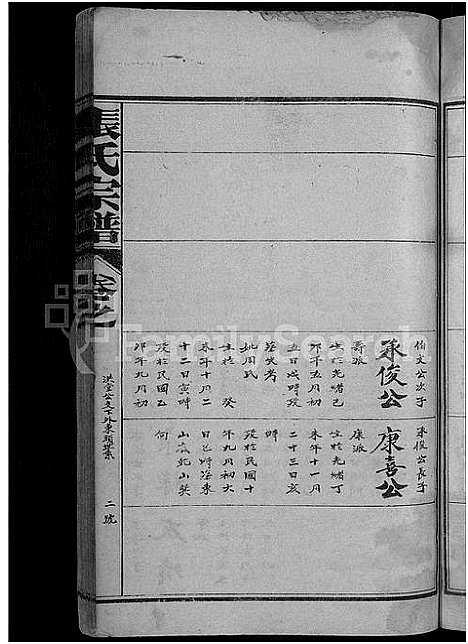 伯文公次子
承俊公
壽派
生於光緒己
卯年五月初
五日戌時歿
葬失考
妣周氏
生於 癸
未年十月二
十二日寅時
歿於民國乙
卯年九月初
承俊公長子
康喜公
康派
生於光緒丁
未年十一月
二十三日亥
時
歿於民國十
年九月初六
日巳時葬東
山底乾山巽
向
張氏宗譜
卷之
洪宣公支下外東頭世系
二號
Family Search